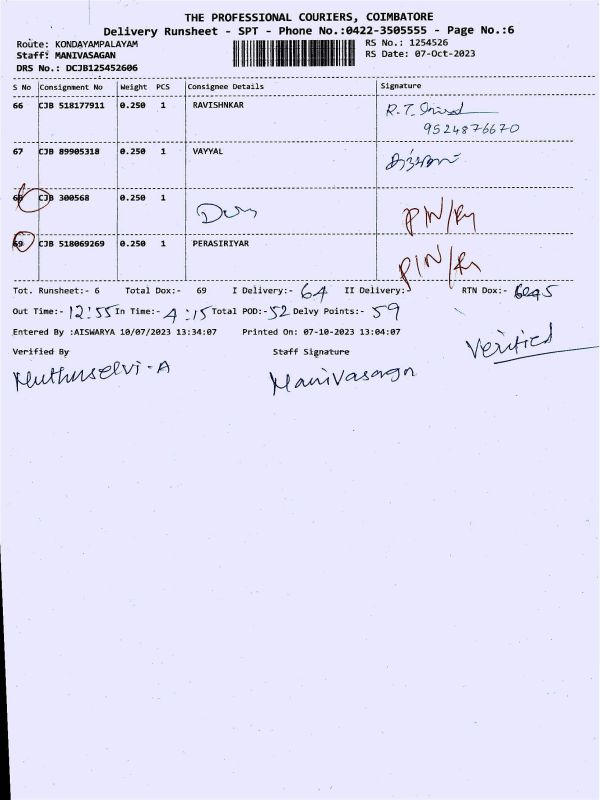 THE PROFESSIONAL COURIERS, COIMBATORE
Delivery Runsheet - SPT - Phone No.:0422-3505555 - Page No.:6
Route: KONDAYAMPALAYAM
Staff: MANIVASAGAN
DRS No.: DCJB125452606
RS No.: 1254526
RS Date: 07-Oct-2023
S No Consignment No Weight PCS Consignee Details Signature
66 CJB 518177911 0.250 1 RAVISHNKAR R.T.
9524876670
67 CJB 89905318 0.250 1 VAYYAL
68 CJB 300568 0.250 1 PIN/
69 CJB 518069269 0.250 1 PERASIRIYAR PIN/
Tot. Runsheet:- 6 Total Dox:- 69 I Delivery:- 64 II Delivery:- RTN Dox:-
Out Time:- 12:55 In Time:- 4:15 Total POD:- 52 Delvy Points:- 59
Entered By :AISWARYA 10/07/2023 13:34:07 Printed On: 07-10-2023 13:04:07
Verified By Staff Signature Verified
Muthuselvi-A Manivasagn